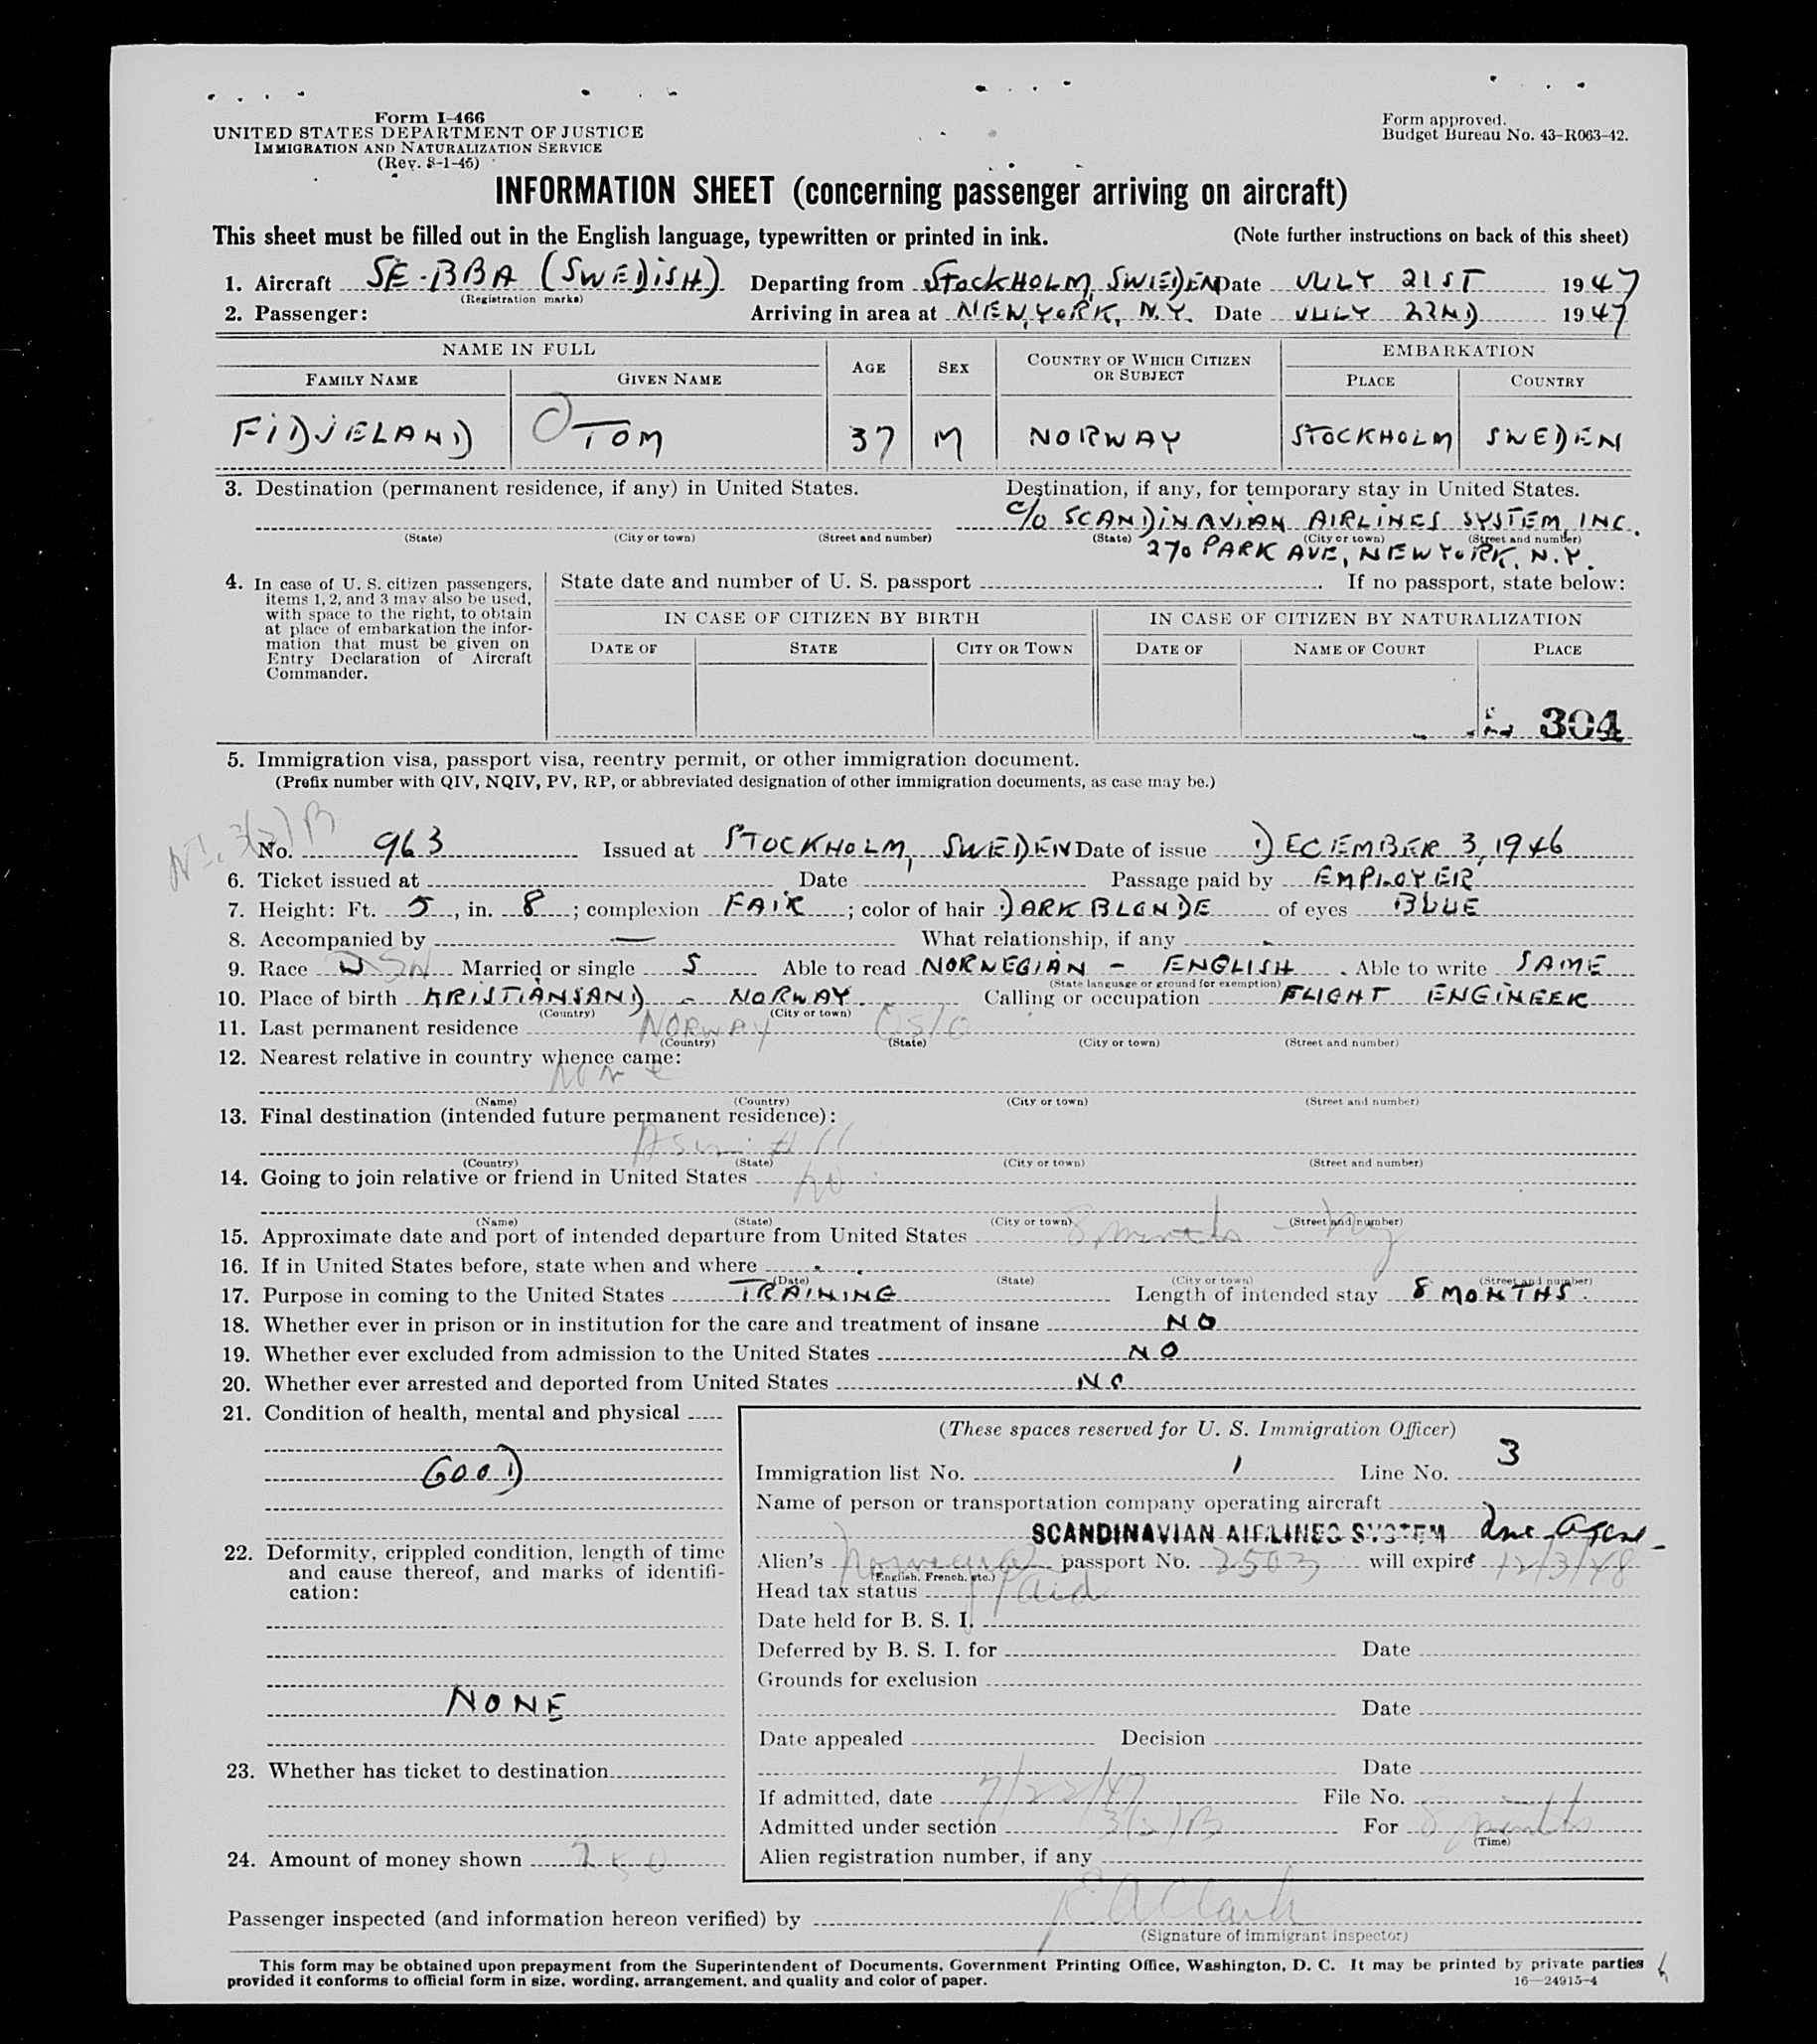 Form I-466
UNITED STATES DEPARTMENT OF JUSTICE
IMMIGRATION AND NATURALIZATION SERVICE
(Rev. 8-1-45)
Form approved.
Budget Bureau No. 43-R063-42.
INFORMATION SHEET (concerning passenger arriving on aircraft)
This sheet must be filled out in the English language, typewritten or printed in ink. (Note further instructions on back of this sheet)
1. Aircraft SE-BBA (SWEDISH) Departing from STOCKHOLM, SWEDEN Date JULY 21ST 1947
(Registration marks)
2. Passenger: Arriving in area at NEW YORK, N.Y. Date JULY 22ND 1947
NAME IN FULL AGE SEX COUNTRY OF WHICH CITIZEN OR SUBJECT EMBARKATION
FAMILY NAME GIVEN NAME PLACE COUNTRY
FIDJELAND TOM 37 M NORWAY STOCKHOLM SWEDEN
3. Destination (permanent residence, if any) in United States. Destination, if any, for temporary stay in United States.
C/O SCANDINAVIAN AIRLINES SYSTEM, INC.
(State) (City or town) (Street and number) (State) (City or town) (Street and number)
270 PARK AVE, NEW YORK, N.Y.
4. In case of U. S. citizen passengers, items 1, 2, and 3 may also be used, with space to the right, to obtain at place of embarkation the information that must be given on Entry Declaration of Aircraft Commander.
State date and number of U. S. passport If no passport, state below:
IN CASE OF CITIZEN BY BIRTH IN CASE OF CITIZEN BY NATURALIZATION
DATE OF STATE CITY OR TOWN DATE OF NAME OF COURT PLACE
304
5. Immigration visa, passport visa, reentry permit, or other immigration document.
(Prefix number with QIV, NQIV, PV, RP, or abbreviated designation of other immigration documents, as case may be.)
3(2)B
No. 963 Issued at STOCKHOLM, SWEDEN Date of issue DECEMBER 3, 1946
6. Ticket issued at Date Passage paid by EMPLOYER
7. Height: Ft. 5, in. 8; complexion FAIR; color of hair DARK BLONDE of eyes BLUE
8. Accompanied by — What relationship, if any -
9. Race W Married or single S Able to read NORWEGIAN - ENGLISH. Able to write SAME
(State language or ground for exemption)
10. Place of birth KRISTIANSAND - NORWAY. Calling or occupation FLIGHT ENGINEER
(Country) (City or town)
11. Last permanent residence NORWAY OSLO
(Country) (State) (City or town) (Street and number)
12. Nearest relative in country whence came:
None
(Name) (Country) (City or town) (Street and number)
13. Final destination (intended future permanent residence):
As in # 11
(Country) (State) (City or town) (Street and number)
14. Going to join relative or friend in United States No
(Name) (State) (City or town) (Street and number)
15. Approximate date and port of intended departure from United States 8 months - NY
16. If in United States before, state when and where
(Date) (State) (City or town) (Street and number)
17. Purpose in coming to the United States TRAINING Length of intended stay 8 MONTHS.
18. Whether ever in prison or in institution for the care and treatment of insane NO
19. Whether ever excluded from admission to the United States NO
20. Whether ever arrested and deported from United States NO
21. Condition of health, mental and physical
GOOD
22. Deformity, crippled condition, length of time and cause thereof, and marks of identification:
NONE
23. Whether has ticket to destination
24. Amount of money shown 250
(These spaces reserved for U. S. Immigration Officer)
Immigration list No. 1 Line No. 3
Name of person or transportation company operating aircraft
SCANDINAVIAN AIRLINES SYSTEM Inc.
Alien's Norwegian passport No. 2503 will expire 12/3/48
(English, French, etc.)
Head tax status Paid
Date held for B. S. I.
Deferred by B. S. I. for Date
Grounds for exclusion
Date
Date appealed Decision
Date
If admitted, date 7/22/47 File No.
Admitted under section 3(2)B For 8 months
(Time)
Alien registration number, if any
Passenger inspected (and information hereon verified) by
(Signature of immigrant inspector)
This form may be obtained upon prepayment from the Superintendent of Documents, Government Printing Office, Washington, D. C. It may be printed by private parties
provided it conforms to official form in size, wording, arrangement, and quality and color of paper.
16—24915-4